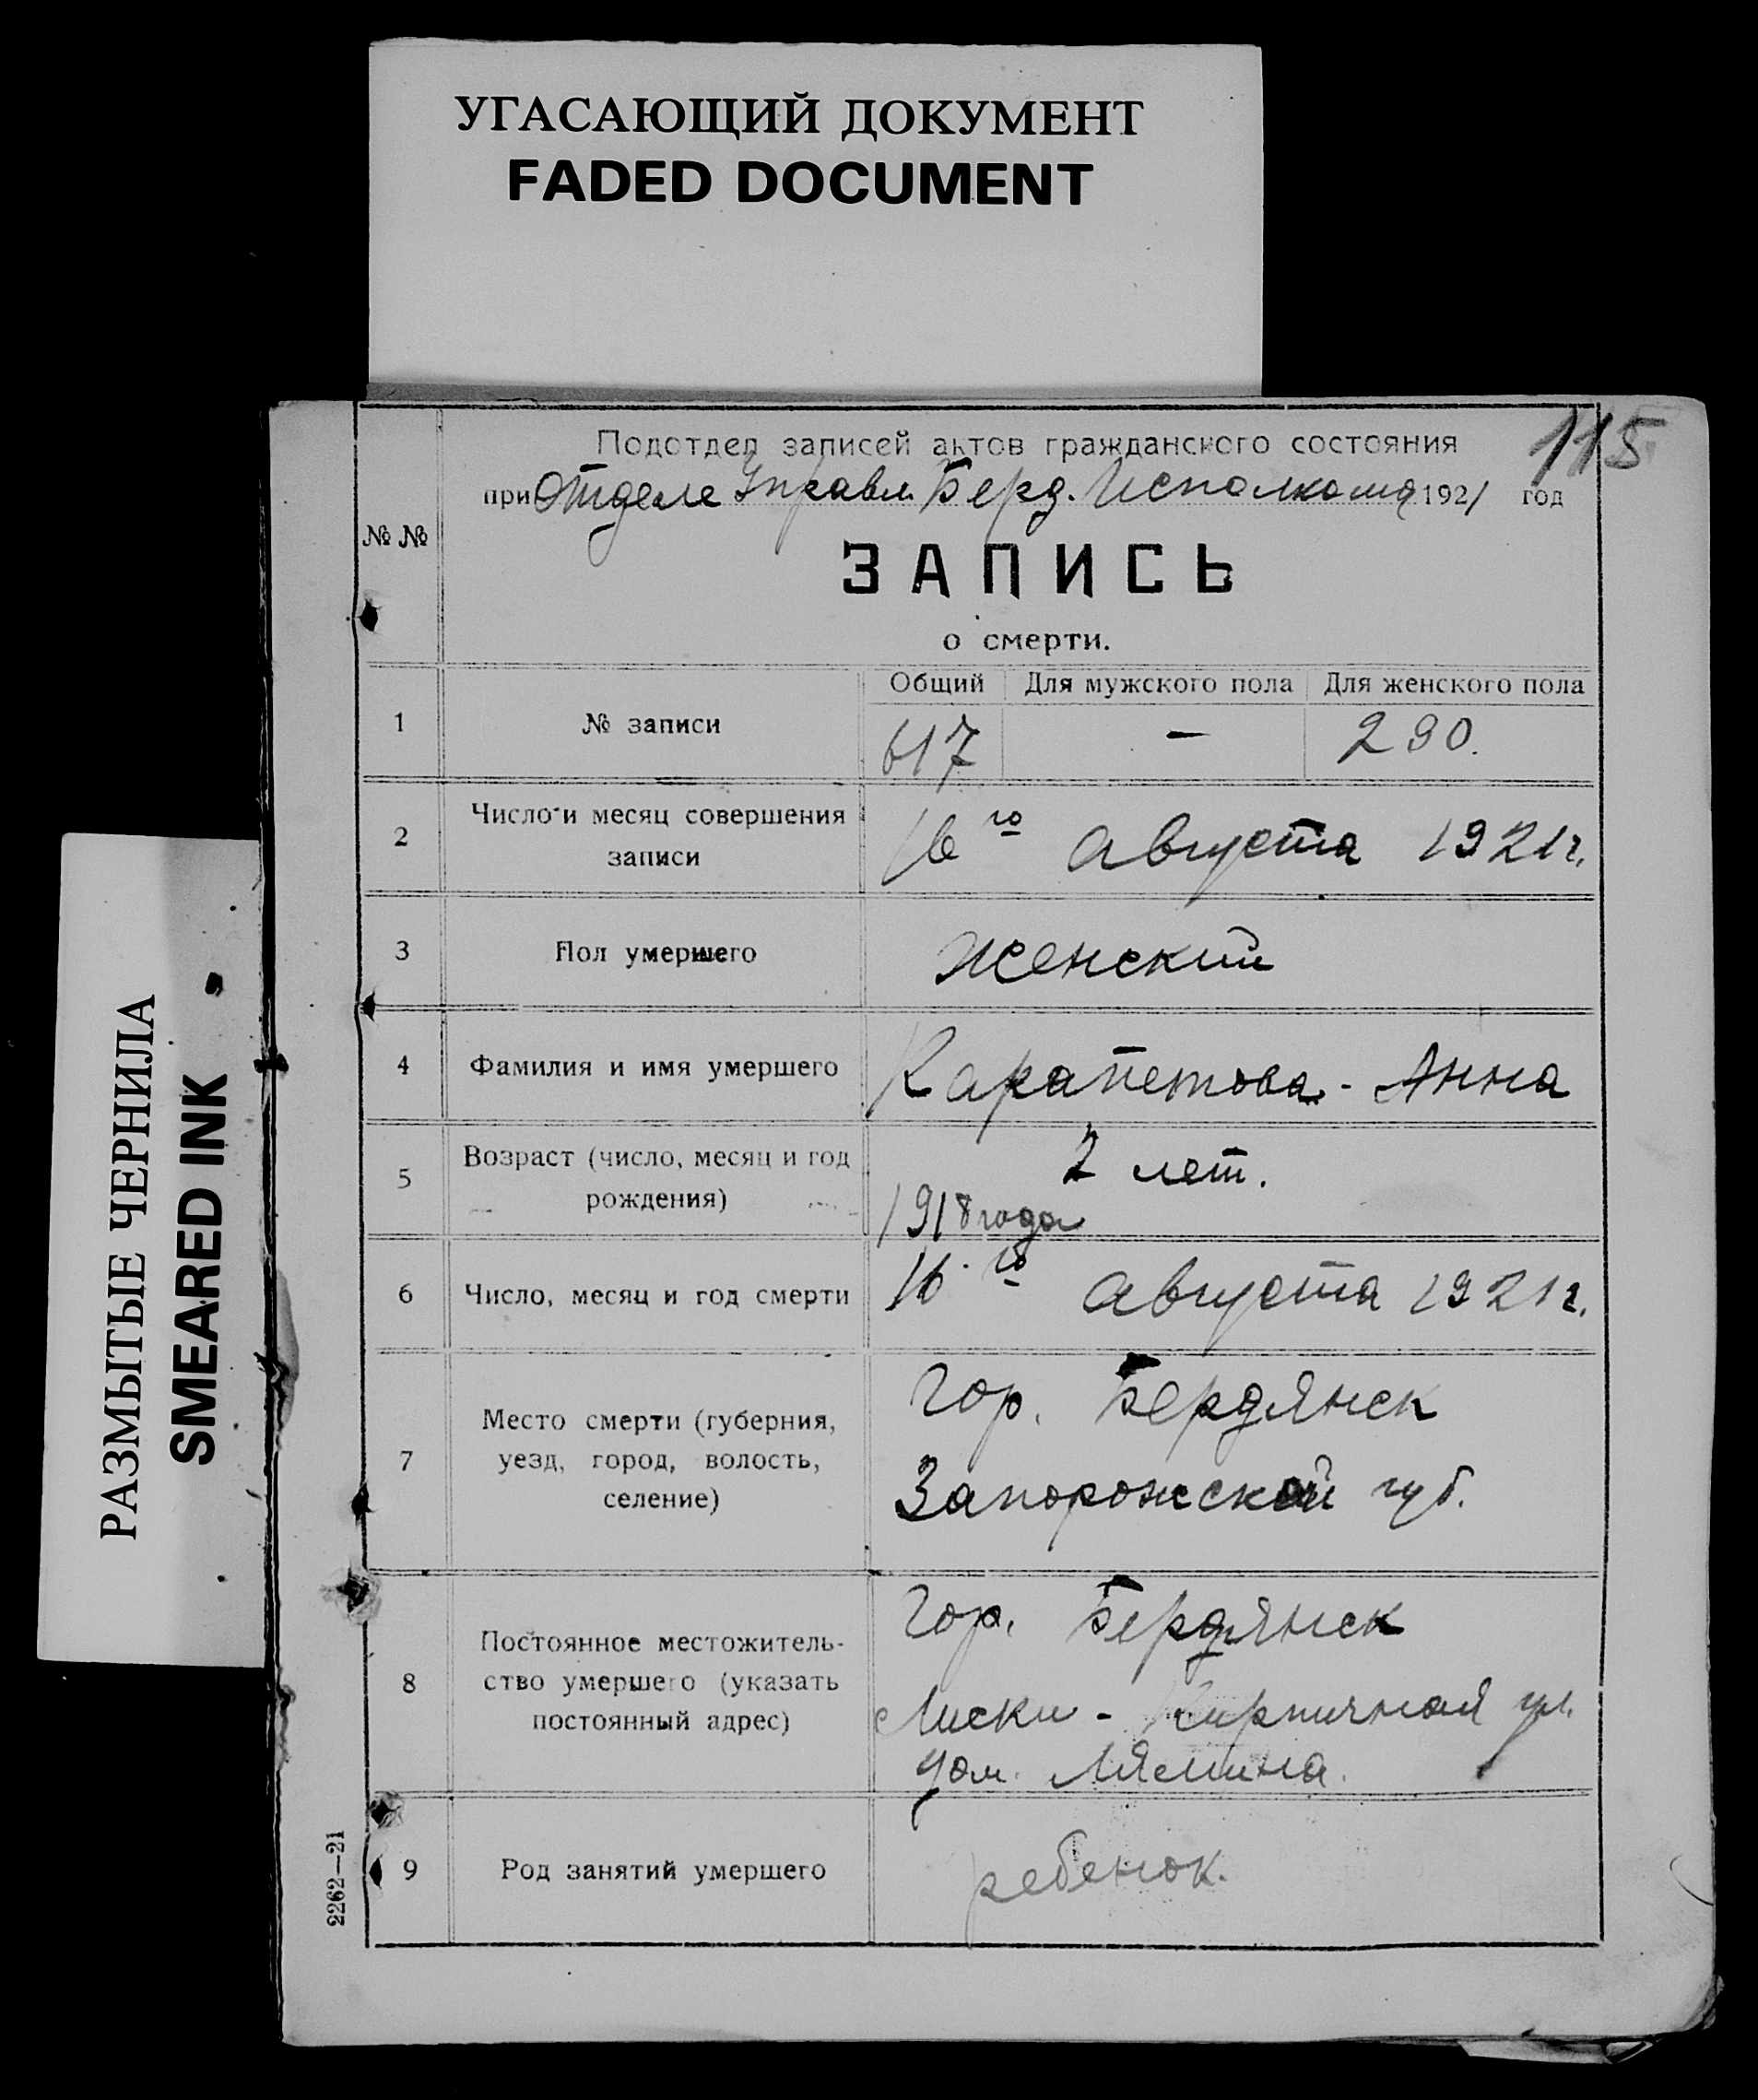 УГАСАЮЩИЙ ДОКУМЕНТ
FADED DOCUMENT
РАЗМЫТЫЕ ЧЕРНИЛА
SMEARED INK
115
Подотдел записей актов гражданского состояния
при Отделе Управл. Берд. Исполкома 1921 год
№ №
ЗАПИСЬ
о смерти.
Общий Для мужского пола Для женского пола
1 № записи 617 — 290.
2 Число и месяц совершения
записи
16 го Августа 1921 г.
3 Пол умершего Женский
4 Фамилия и имя умершего Карапетова - Анна
5 Возраст (число, месяц и год
рождения)
2 лет.
1918 года
6 Число, месяц и год смерти 16 го Августа 1921 г.
7 Место смерти (губерния,
уезд, город, волость,
селение)
Гор. Бердянск
Запорожской губ.
8 Постоянное местожитель-
ство умершего (указать
постоянный адрес)
Гор. Бердянск
Лиски - Кирпичная ул.
дом. Лямина.
9 Род занятий умершего ребенок.
2262—21